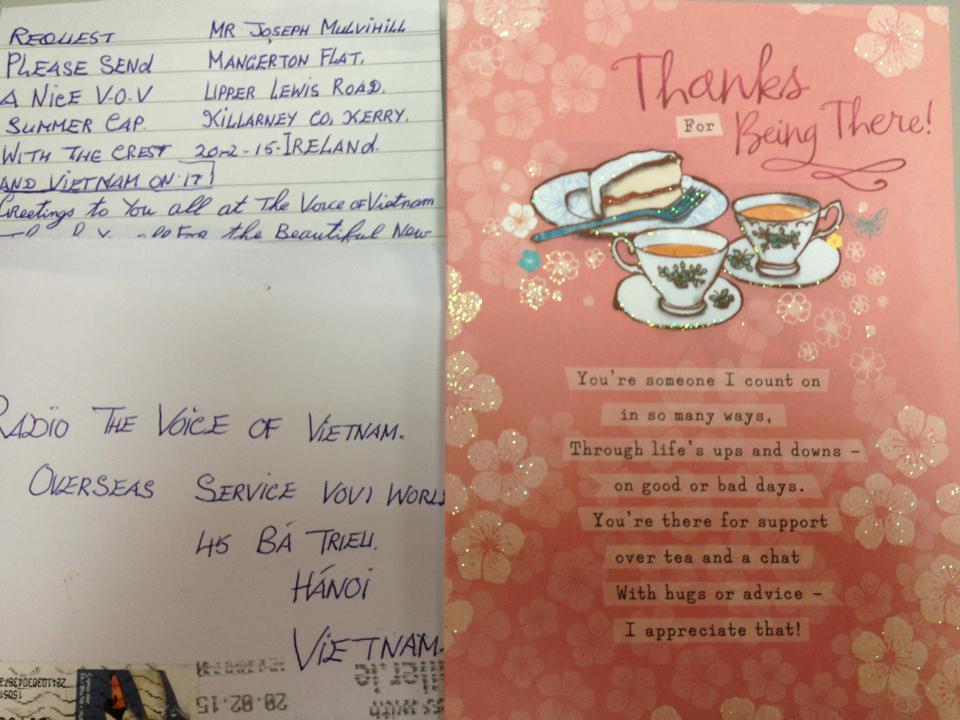 REQUEST
PLEASE SEND
A NICE V.O.V
SUMMER CAP.
WITH THE CREST
AND VIETNAM ON IT!
MR JOSEPH MULVIHILL
MANGERTON FLAT,
UPPER LEWIS ROAD.
KILLARNEY CO, KERRY.
20-2-15-IRELAND.
Greetings to You all at The Voice of Vietnam
for the Beautiful New
RADIO THE VOICE OF VIETNAM.
OVERSEAS SERVICE VOV1 WORL
45 BÁ TRIEU.
HÁNOI
VIETNAM.
20.02.15
Thanks
For Being There!
You're someone I count on
in so many ways,
Through life's ups and downs –
on good or bad days.
You're there for support
over tea and a chat
With hugs or advice –
I appreciate that!